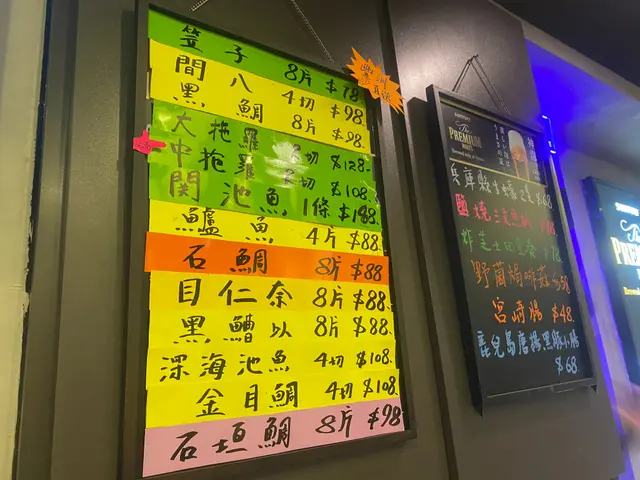 笠子 8片 $78
間八 4切 $98
黑鯛 8片 $98
大拖羅 切 $128
中拖羅 切 $108
関池魚 1條 $188
鱸魚 4片 $88
石鯛 8片 $88
目仁奈 8片 $88
黑鰽以 8片 $88
深海池魚 4切 $108
金目鯛 4切 $108
石垣鯛 8片 $98
The PREMIUM MALT'S
兵庫縣生蠔2隻 $68
野菌焗
宮崎腸 $48
鹿兒島唐揚黑豚小腸
$68
The
PREM